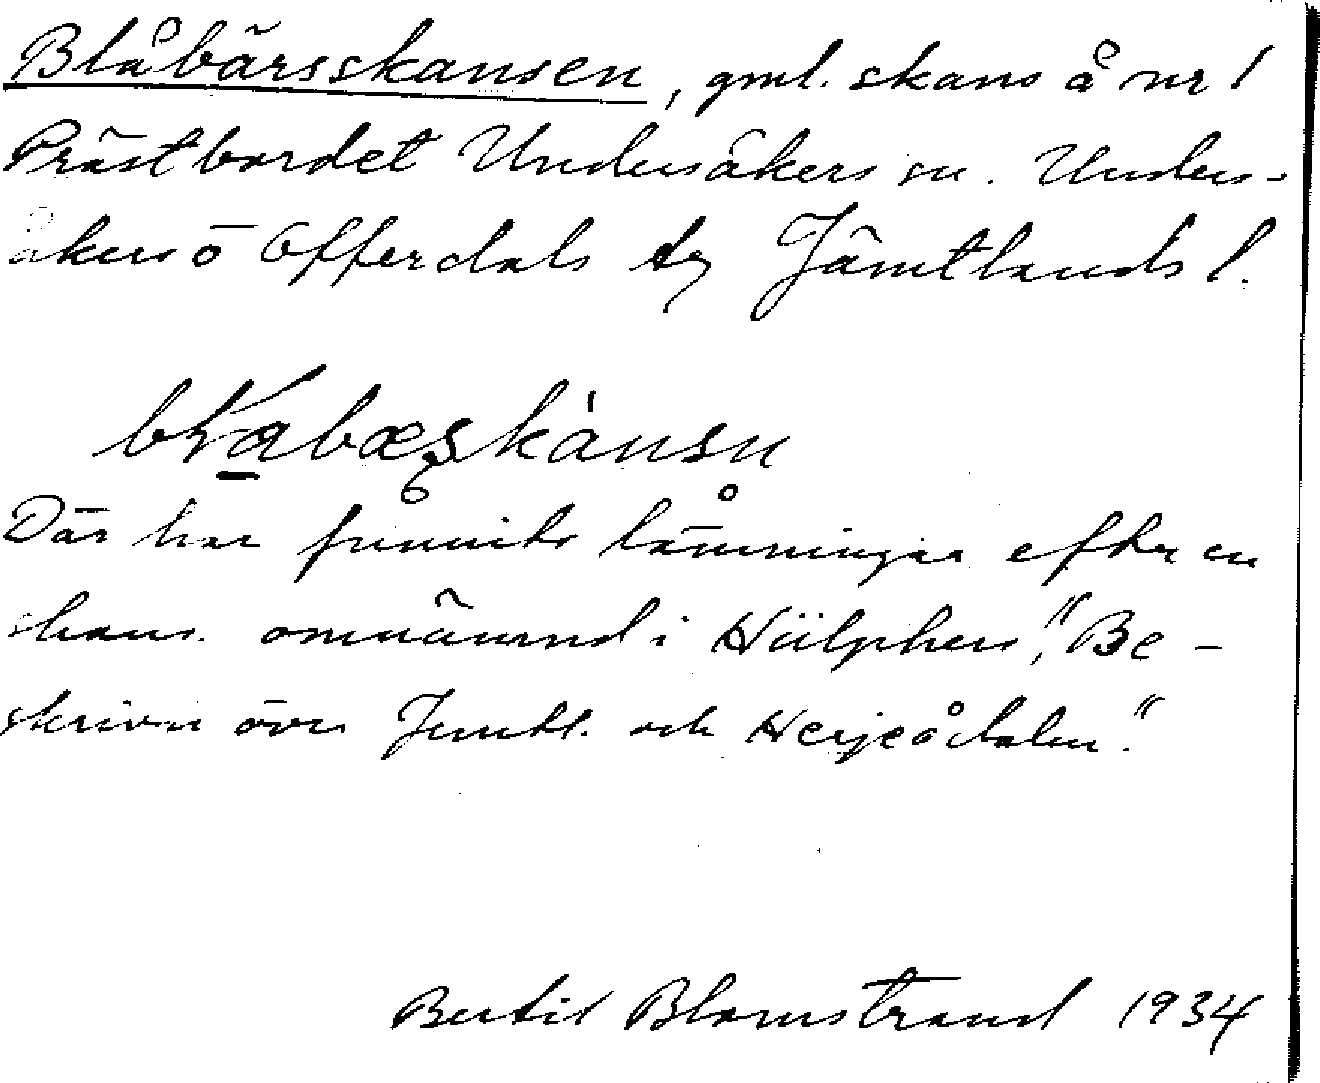 Blåbärsskansen, gml. skans å nr 1
Prästbordet Undersåkers sn. Unders-
åkers o Offerdals tg Jämtlands l.
bɫabæskànsn
Där har funnits lämningar efter en
skans omnämnd i Hülphers, "Be-
skrivn över Jemtl. och Herjeådalen."
Bertil Blomstrand 1934